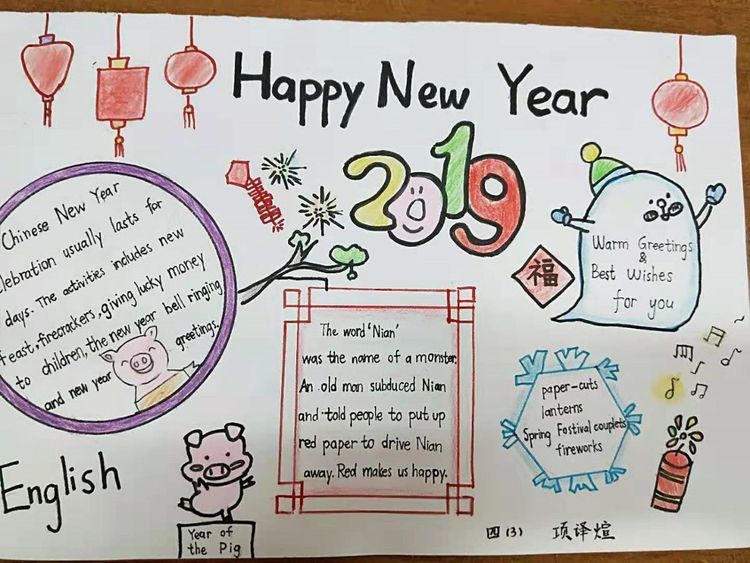 Happy New Year
2019
Chinese New Year
elebration usually lasts for
days. The activities includes new
feast, firecrackers, giving lucky money
to children, the new year bell ringing
and new year greetings.
福
Warm Greetings
&
Best Wishes
for you
The word 'Nian'
was the name of a monster.
An old man subduced Nian
and told people to put up
red paper to drive Nian
away. Red makes us happy.
paper-cuts
lanterns
Spring Festival couplets
fireworks
English
Year of
the Pig
四(3) 项译煊